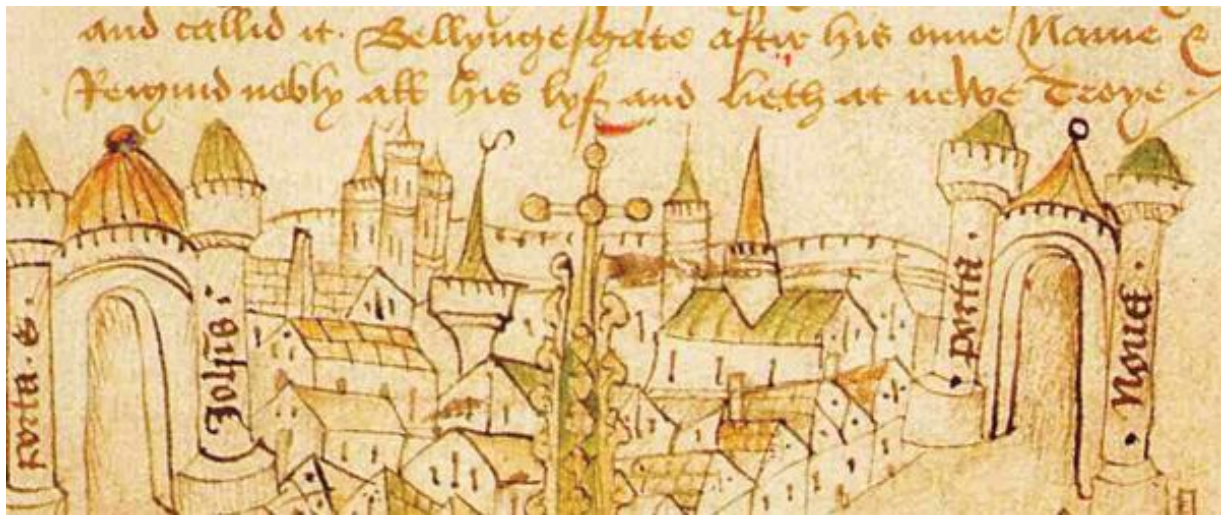 and callid it. Bellyngesgate aftir his oune Name &
Reignid nobly all his lyf and lieth at newe Troye
porta
porta